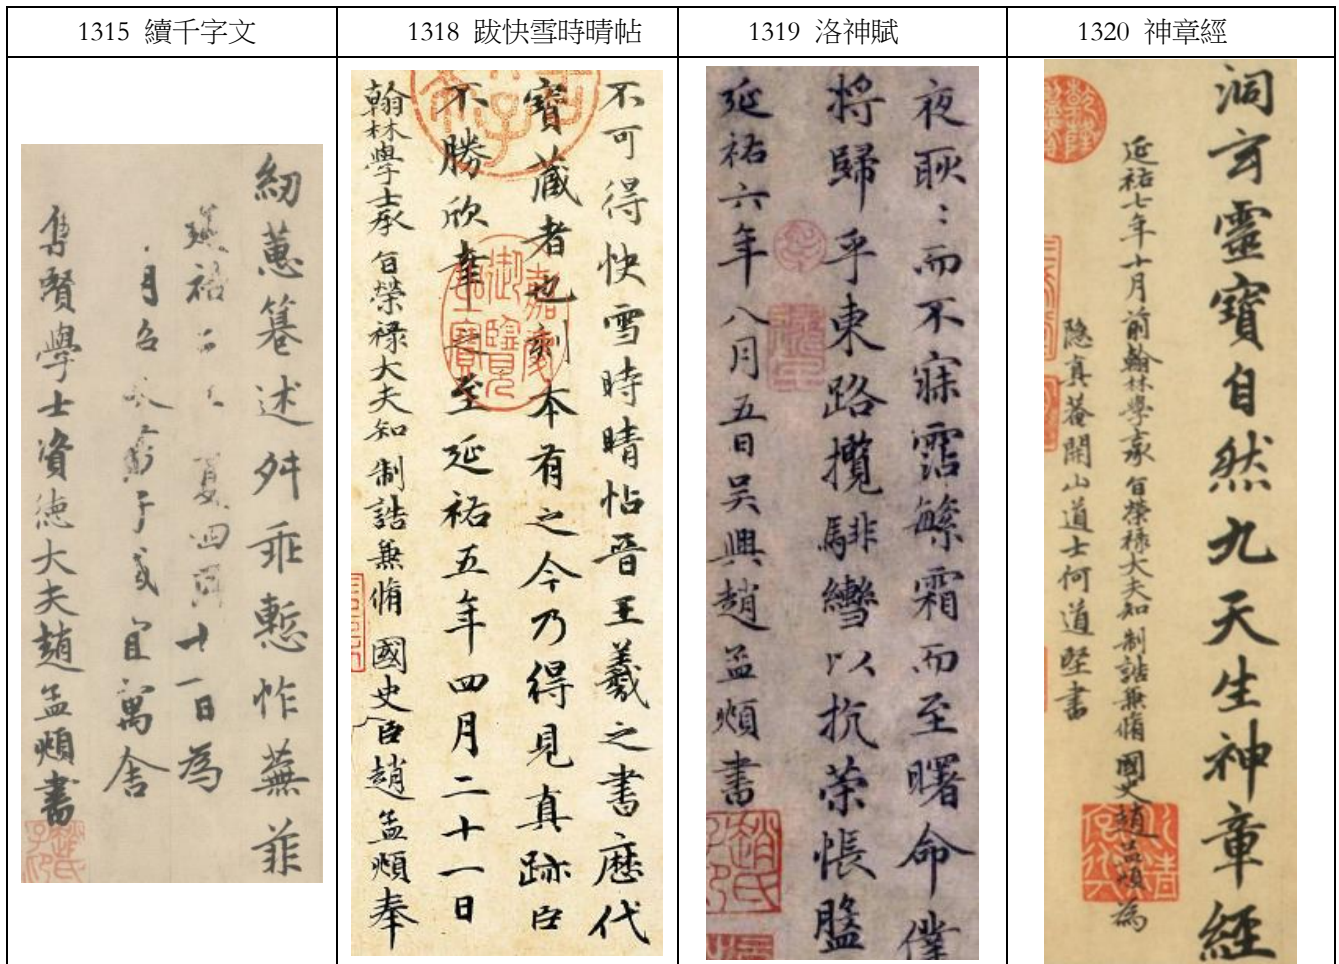 1315 續千字文
1318 跋快雪時晴帖
1319 洛神賦
1320 神章經
紉蕙篹述舛乖慙怍蕪菲
延祐 夏四月十一日為
月 寓舍
集賢學士資德大夫趙孟頫書
不可得快雪時晴帖晉王羲之書歷代
寶藏者也刻本有之今乃得見真跡臣
不勝欣幸之至延祐五年四月二十一日
翰林學士承旨榮祿大夫知制誥兼脩國史臣趙孟頫奉
夜耿〻而不寐霑繁霜而至曙命僕
將歸乎東路攬騑轡以抗策悵盤
延祐六年八月五日吳興趙孟頫書
洞玄靈寶自然九天生神章經
延祐七年十月前翰林學士承旨榮祿大夫知制誥兼脩國史趙孟頫為
隱真菴開山道士何道堅書